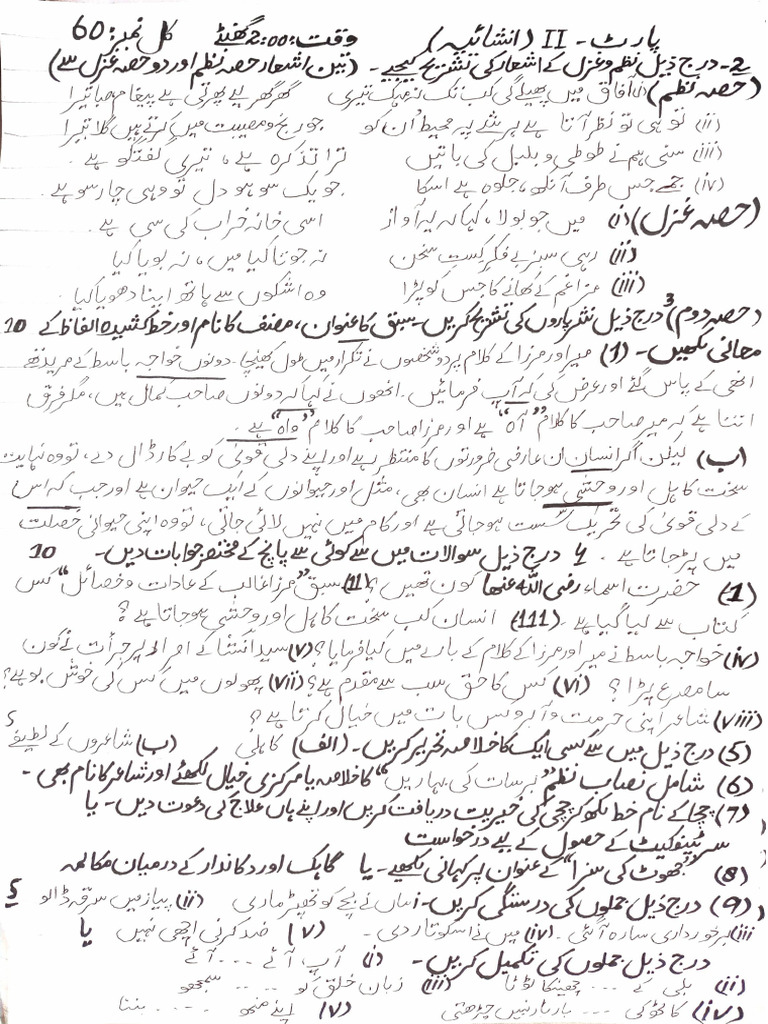 پارٹ - II (انشائیہ) وقت: 2:00 گھنٹے کل نمبر: 60
2- درج ذیل نظم و غزل کے اشعار کی تشریح کیجیے - (تین اشعار حصہ نظم اور دو حصہ غزل سے)
(حصہ نظم) (i) آفاق میں پھیلے گی کب تک نہ مہک تیری گھر گھر لیے پھرتی ہے پیغام صبا تیرا
(ii) تو ہی تو نظر آتا ہے ہر شئے پہ محیط اُن کو جو رنج و مصیبت میں کرتے ہیں گلا تیرا
(iii) سنی ہم نے طوطی و بلبل کی باتیں ترا تذکرہ ہے، تیری گفتگو ہے .
(iv) جمے جس طرف آنکھ، جلوہ ہے اسکا جو یک سو ہو دل تو وہی چار سو ہے .
(حصہ غزل) (i) میں جو بولا، کہا کہ یہ آواز اسی خانہ خراب کی سی ہے .
(ii) رہی سبز بے فکر کِشتِ سخن نہ جوتا کیا میں، نہ بویا کیا
(iii) مزا غم کے کھانے کا جس کو پڑا وہ اشکوں سے ہاتھ اپنا دھویا کیا .
(حصہ دوم) 3 درج ذیل نثر پاروں کی تشریح کریں - سبق کا عنوان، مصنف کا نام اور خط کشیدہ الفاظ کے 10
معانی لکھیں - (1) میر اور مرزا کے کلام پر دو شخصوں نے تکرار میں طول کھینچا . دونوں خواجہ باسط کے مرید تھے
انھی کے پاس گئے اور عرض کی کہ آپ فرمائیں . انھوں نے کہا کہ دونوں صاحب کمال ہیں، مگر فرق
اتنا ہے کہ میر صاحب کا کلام "آہ" ہے اور مرزا صاحب کا کلام "واہ" ہے .
(ب) لیکن اگر انسان ان عارضی ضرورتوں کا منتظر رہے اور اپنے دلی قویٰ کو بے کار ڈال دے، تو وہ نہایت
سخت کاہل اور وحشی ہو جاتا ہے انسان بھی، مثل اور حیوانوں کے ایک حیوان ہے اور جب کہ اس
کے دلی قویٰ کی تحریک سُست ہو جاتی ہے اور کام میں نہیں لائی جاتی، تو وہ اپنی حیوانی خصلت
میں پڑ جاتا ہے . 4 درج ذیل سوالات میں سے کوئی سے پانچ کے مختصر جوابات دیں - 10
(1) حضرت اسماء رضی اللہ عنھا کون تھیں ؟ (11) سبق "مرزا غالب کے عادات و خصائل" کس
کتاب سے لیا گیا ہے . (111) انسان کب سخت کاہل اور وحشی ہو جاتا ہے ؟
(iv) خواجہ باسط نے میر اور مرزا کے کلام کے بارے میں کیا فرمایا ؟ (v) سید انشا کے پر جرأت نے کون
سا مصرع پڑا ؟ (vi) کس کا حق سب سے مقدم ہے ؟ (vii) پھولوں میں کس کی خوش بو ہے ؟
(viii) شاعر اپنی حرمت و آبرو کس بات میں خیال کرتا ہے ؟
(5) درج ذیل میں سے کسی ایک کا خلاصہ تحریر کریں - (الف) کاہلی (ب) شاعروں کے لطیفے 5
(6) شامل نصاب نظم "برسات کی بہاریں" کا خلاصہ یا مرکزی خیال لکھئے اور شاعر کا نام بھی -
(7) چچا کے نام خط لکھ کر چچی کی خیریت دریافت کریں اور اپنے ہاں علاج کی دعوت دیں - یا
سرٹیفکیٹ کے حصول کے لیے درخواست
(8) "جھوٹ کی سزا" کے عنوان پر کہانی لکھیے - یا گاہک اور دکاندار کے درمیان مکالمہ
(9) درج ذیل جملوں کی درستگی کریں - (i) اماں نے بچے کو تھپڑ ماری (ii) پیاز میں سرقہ ڈالو 5
iii برخورداری سارہ آ گئی . (iv) میں نے اسکو تار دی . (v) ضد کرنی اچھی نہیں یا
درج ذیل جملوں کی تکمیل کریں - (i) آپ آئے ---- آئے
(ii) بلی کے ---- چھینکا ٹوٹا (iii) زبان خلق کو ---- سمجھو
(iv) کاٹھ کی ---- بار بار نہیں چڑھتی (v) اپنے منھ ---- بننا